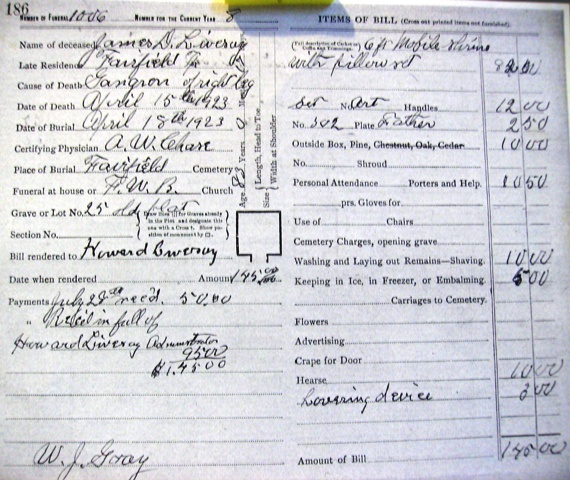 186
NUMBER OF FUNERAL 1086 NUMBER FOR THE CURRENT YEAR 8
Name of deceased James D. Livesay
Late Residence Fairfield
Cause of Death Gangron of right leg
Date of Death April 15th 1923
Date of Burial April 18th 1923
Certifying Physician A. W. Chase
Place of Burial Fairfield Cemetery
Funeral at house or F. W. B. Church
Grave or Lot No. 25 old plat
Section No.
(Draw lines for Graves already in the Plot and designate this one with a Cross †. Show position of monument by □.)
Bill rendered to Howard Livesay
Date when rendered Amount 145.00
Payments July 28th rec'd. 50.00
" Rec'd in full of
Howard Livesay Administrator
95.00
$1.45.00
W. J. Gray
Age Years Months
Length, Head to Toe
Size Width at Shoulder
ITEMS OF BILL (Cross out printed items not furnished).
(Full description of Casket or Coffin and Trimmings.) 6/3 Mobile
with pillow set 82 00
Set No. Art Handles 12 00
No. 302 Plate Father 2 50
Outside Box, Pine, Chestnut, Oak, Cedar 10 00
No. Shroud
Personal Attendance Porters and Help. 10 50
prs. Gloves for
Use of Chairs
Cemetery Charges, opening grave
Washing and Laying out Remains—Shaving. 10 00
Keeping in Ice, in Freezer, or Embalming. 5 00
Carriages to Cemetery.
Flowers
Advertising
Crape for Door
Hearse 10 00
Lowering device 3 00
Amount of Bill 145 00